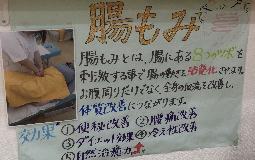 腸もみ
腸もみとは、腸にある8つのツボを
刺激する事で腸の動きを活発化させます。
お腹周りだけでなく全身の血流を改善し、
体質改善につながります。
効果
①便秘改善 ②腰痛改善
③ダイエット効果 ④冷え性改善
⑤自然治癒力↑